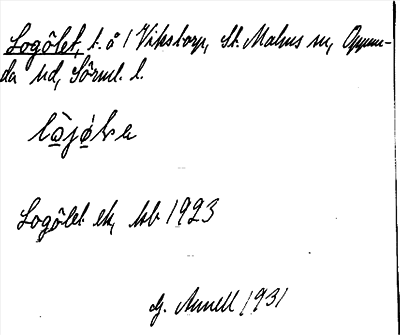 Logölet, t. å 1 Vikstorp, St. Malms sn, Oppun-
da hd, Sörml. l.
lo̱jø̱le
Logölet ek, kb 1923
G. Annell 1931